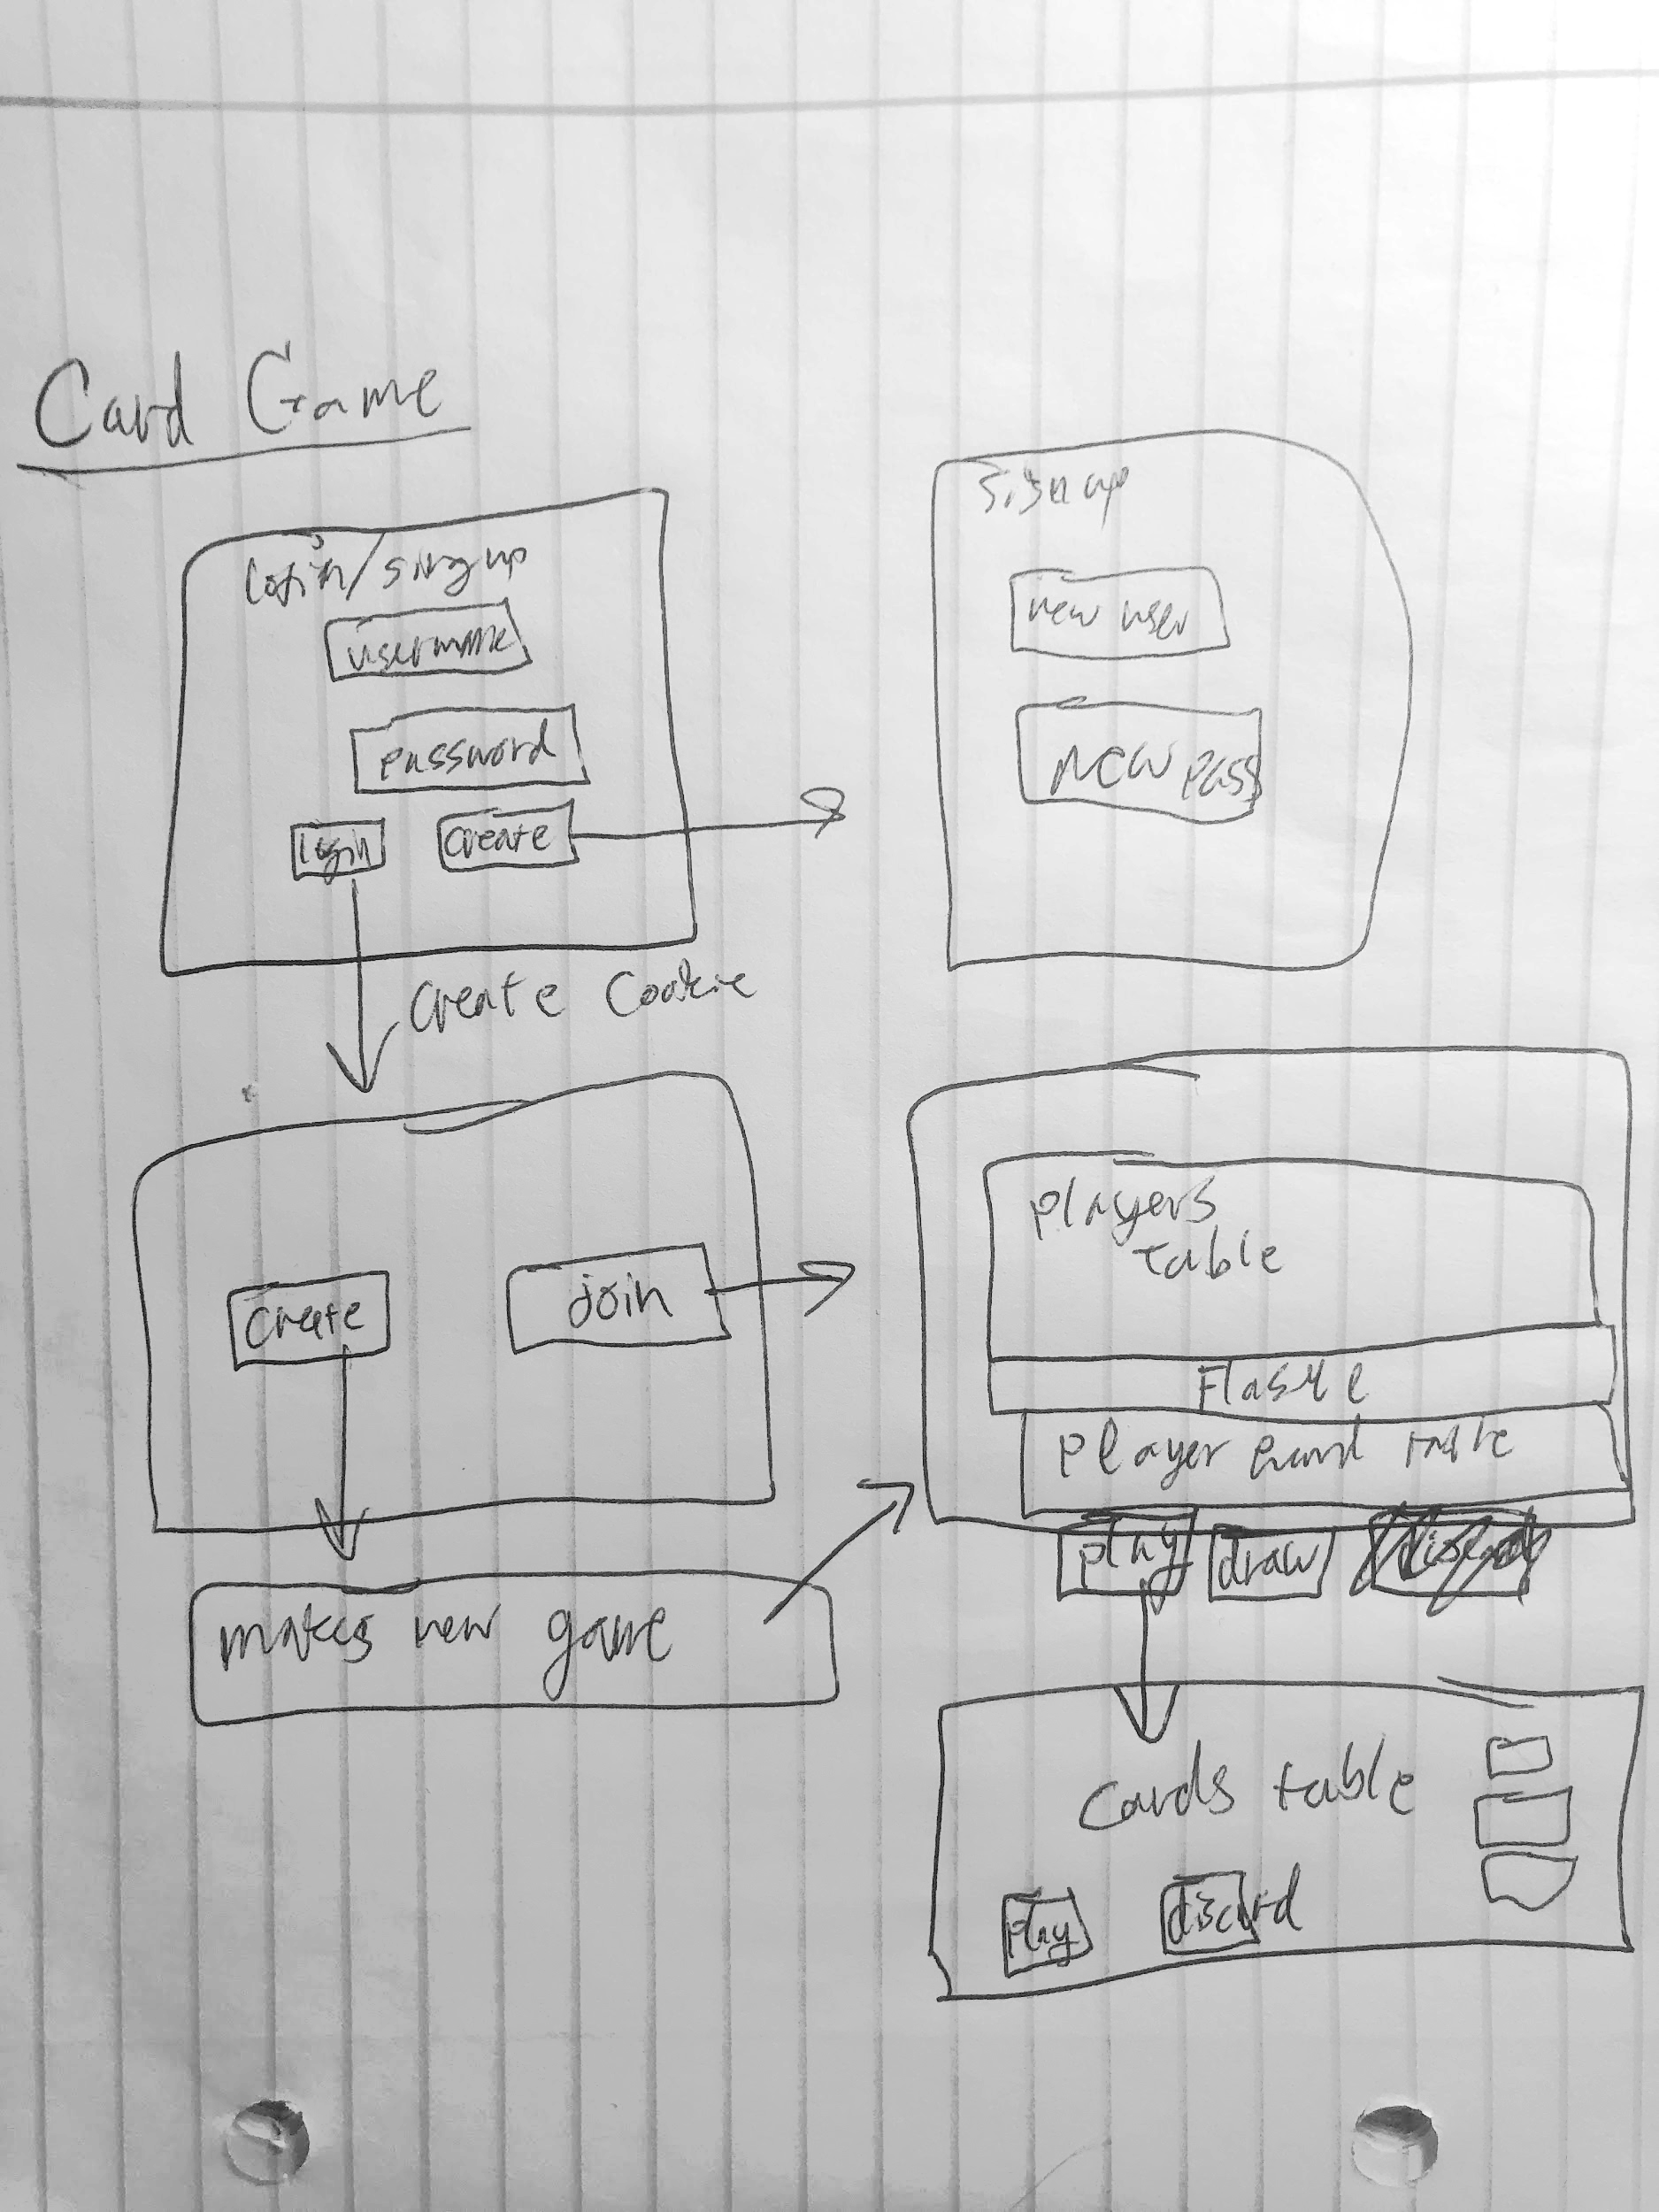 Card Game
Login/singup
username
password
login
create
Signup
new user
New pass
create cookie
create
join
makes new game
Players
table
Player hand table
play
draw
Cards table
Play
discard